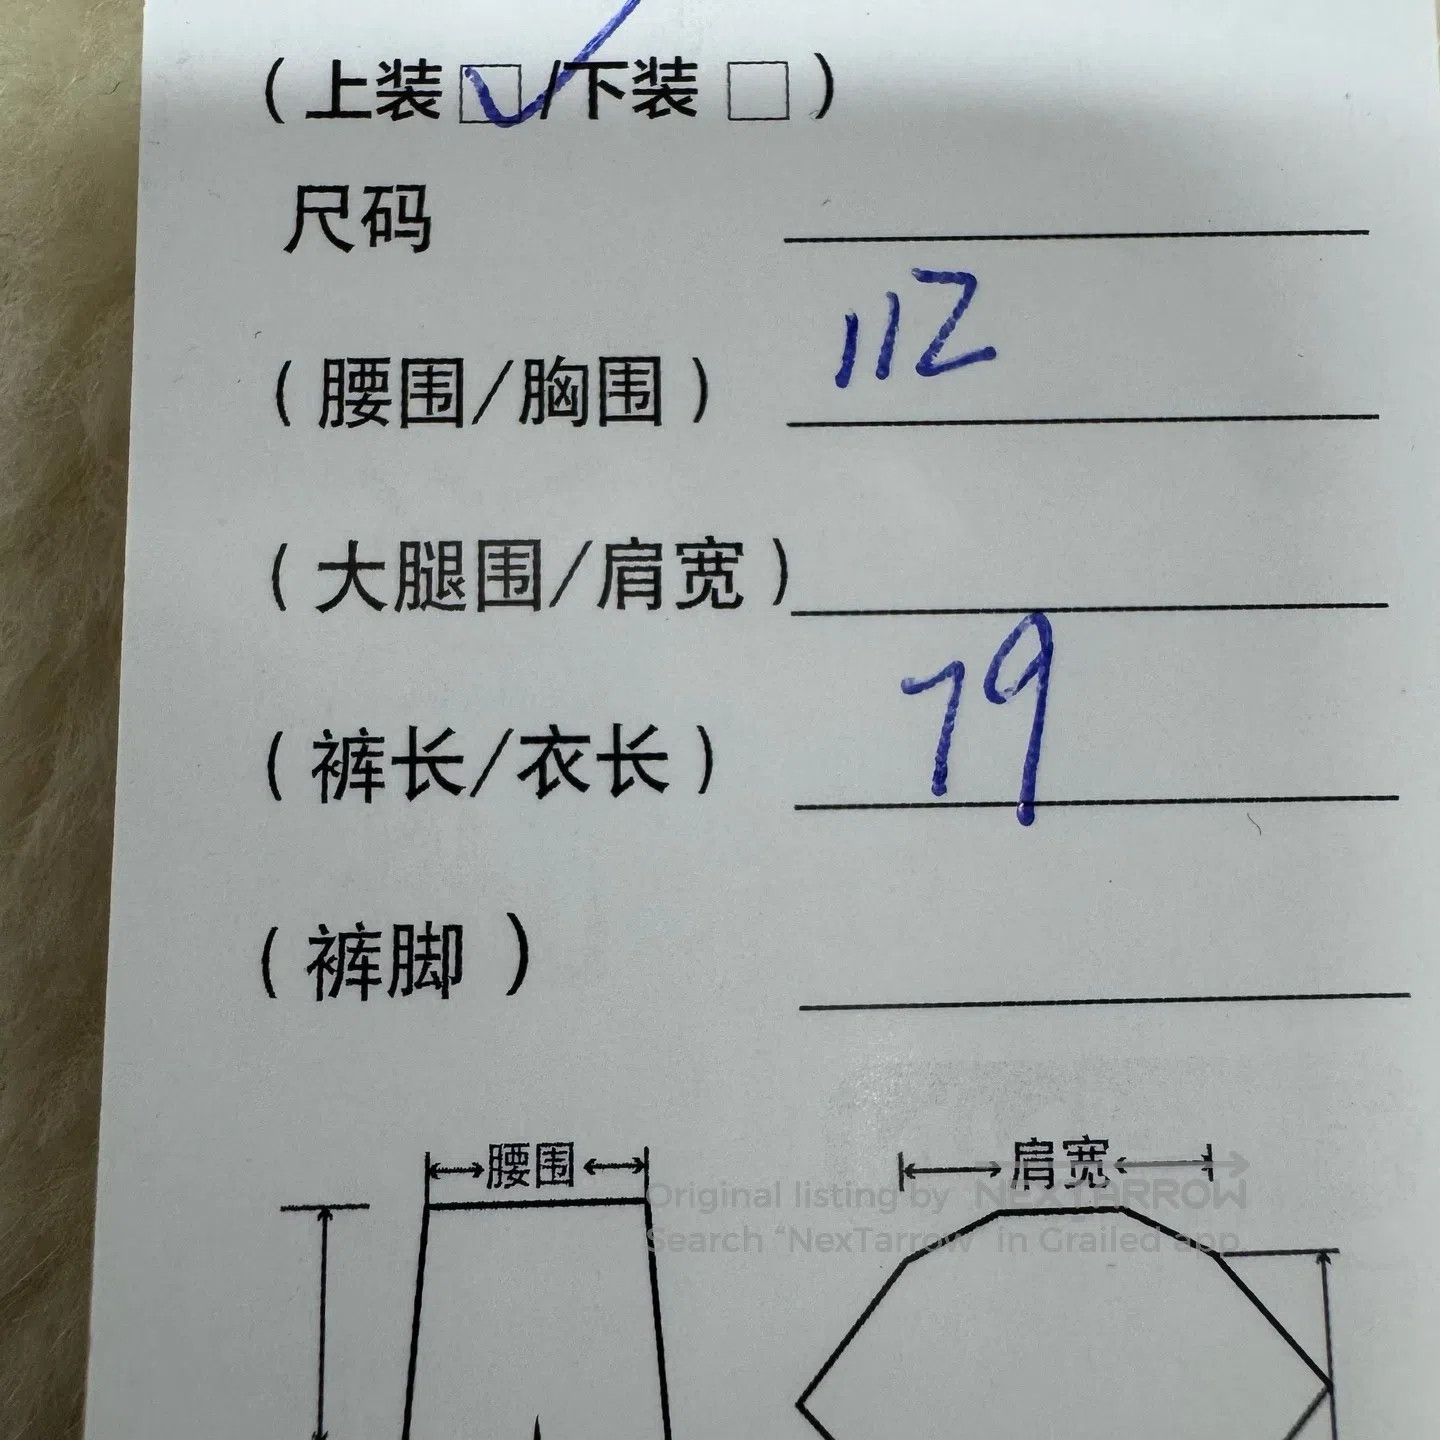 (上装☑/下装□)
尺码
(腰围/胸围) 112
(大腿围/肩宽)
(裤长/衣长) 79
(裤脚)
腰围 肩宽
Original listing by NEXTARROW
Search "NexTarrow" in Grailed app